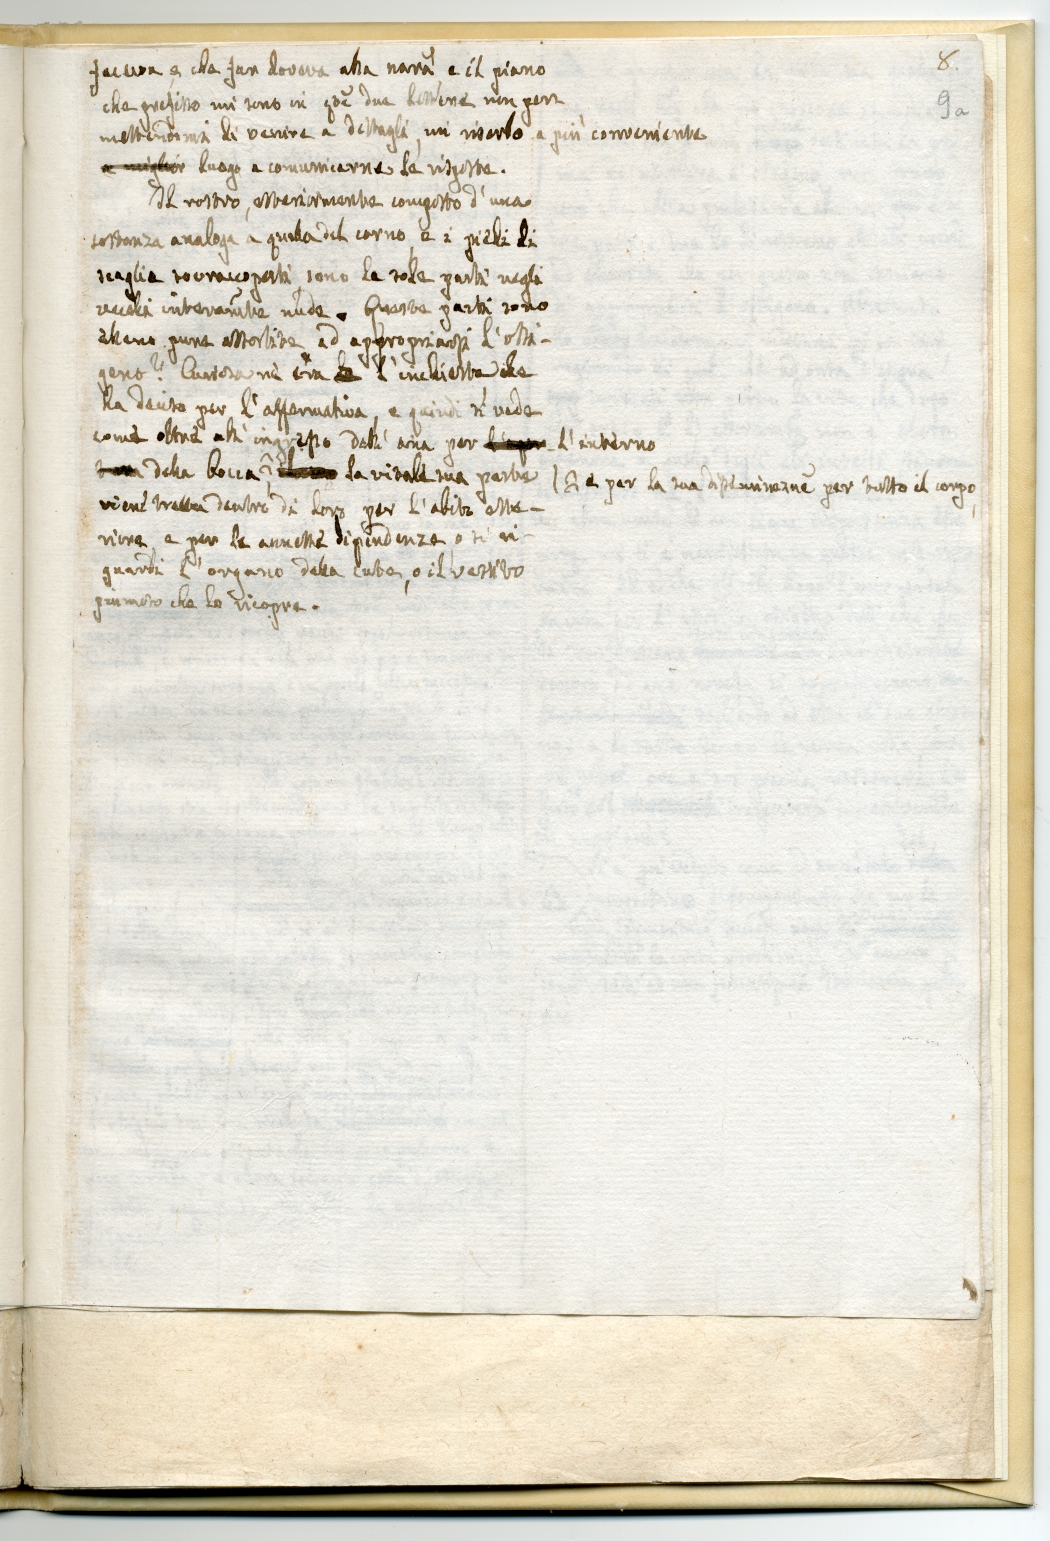 8.
9a
faceva e che far doveva alla narã e il piano
che prefisso mi sono in qste due lettere non per-
mettendomi di venire a dettagli, mi riserbo a più conveniente
a miglior luogo a comunicarne le risposte.
Il rostro, esteriormente composto d'una
sostanza analoga a quella del corno, e i piedi di
scaglie sovraccoperti, sono le sole parti negli
uccelli interamte nude. Queste parti sono
elleno pure assortite ad appropriarsi l'ossi-
geno? Curiosa ne era l'inchiesta che
ha deciso per l'affermativa, e quindi si vede
come oltre all'ingresso dell'aria per l'interno
della bocca, la vitale sua parte | e per la sua disseminazne per tutto il corpo,
viene tratta dentro di loro per l'abito este-
riore, e per le annesse dipendenze o si ri-
guardi l'organo della cute, o il vestito
piumoso che le ricopre.